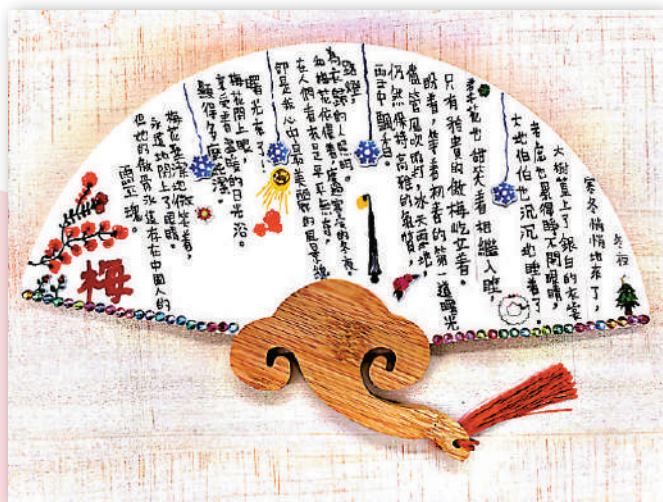 冬夜
寒冬悄悄地來了，
大樹蓋上了銀白的衣裳
老鷹也累得睜不開眼睛，
士地伯伯也沉沉地睡着了。
花也甜笑着相繼入睡，
只有雅貴的傲梅屹立着。
盼着，等着初春的第一道曙光
儘管風吹雨打，冰天雪地，
仍然保持高雅的氣質，
雪中飄香。
路燈，
歸的人照明。
和梅花依偎着，度過寒冷的冬夜
在人們看來是平平無奇，
卻是我心中最美麗的風景線
曙光來了！
梅花閉上眼，
享受着溫暖的日光浴。
顯得多麼純潔。
梅花聖潔地微笑着，
永遠地閉上了眼睛。
但她的傲骨永遠存在中國人的
靈魂。
梅